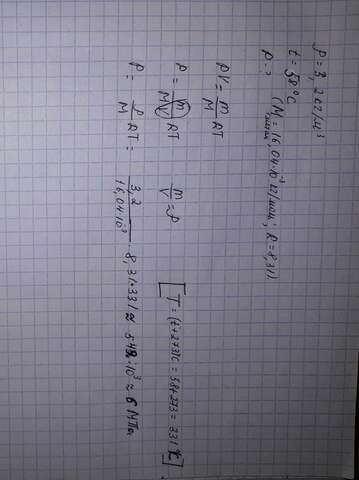 ρ = 3,2 кг/м³
t = 58°C
p - ? (M = 16,04·10⁻³ кг/моль; R = 8,31)
PV = m/M RT
P = m/MV RT m/V = ρ [T = (t+273)C = 58+273 = 331°C]
P = ρ/M RT = 3,2/16,04·10⁻³ · 8,31·331 ≈ 549·10³ ≈ 6 МПа